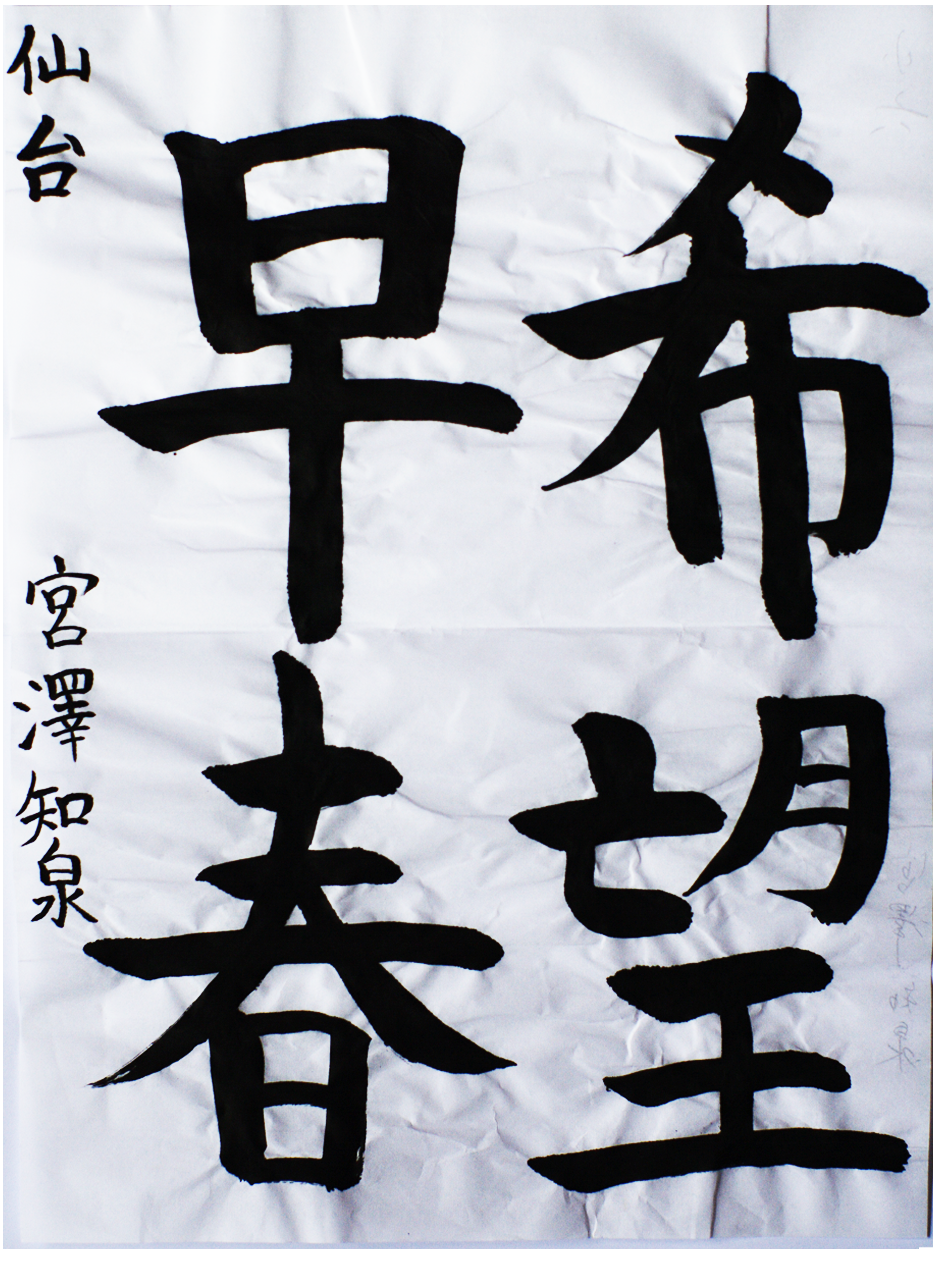 希望
早春
仙台 宮澤知泉